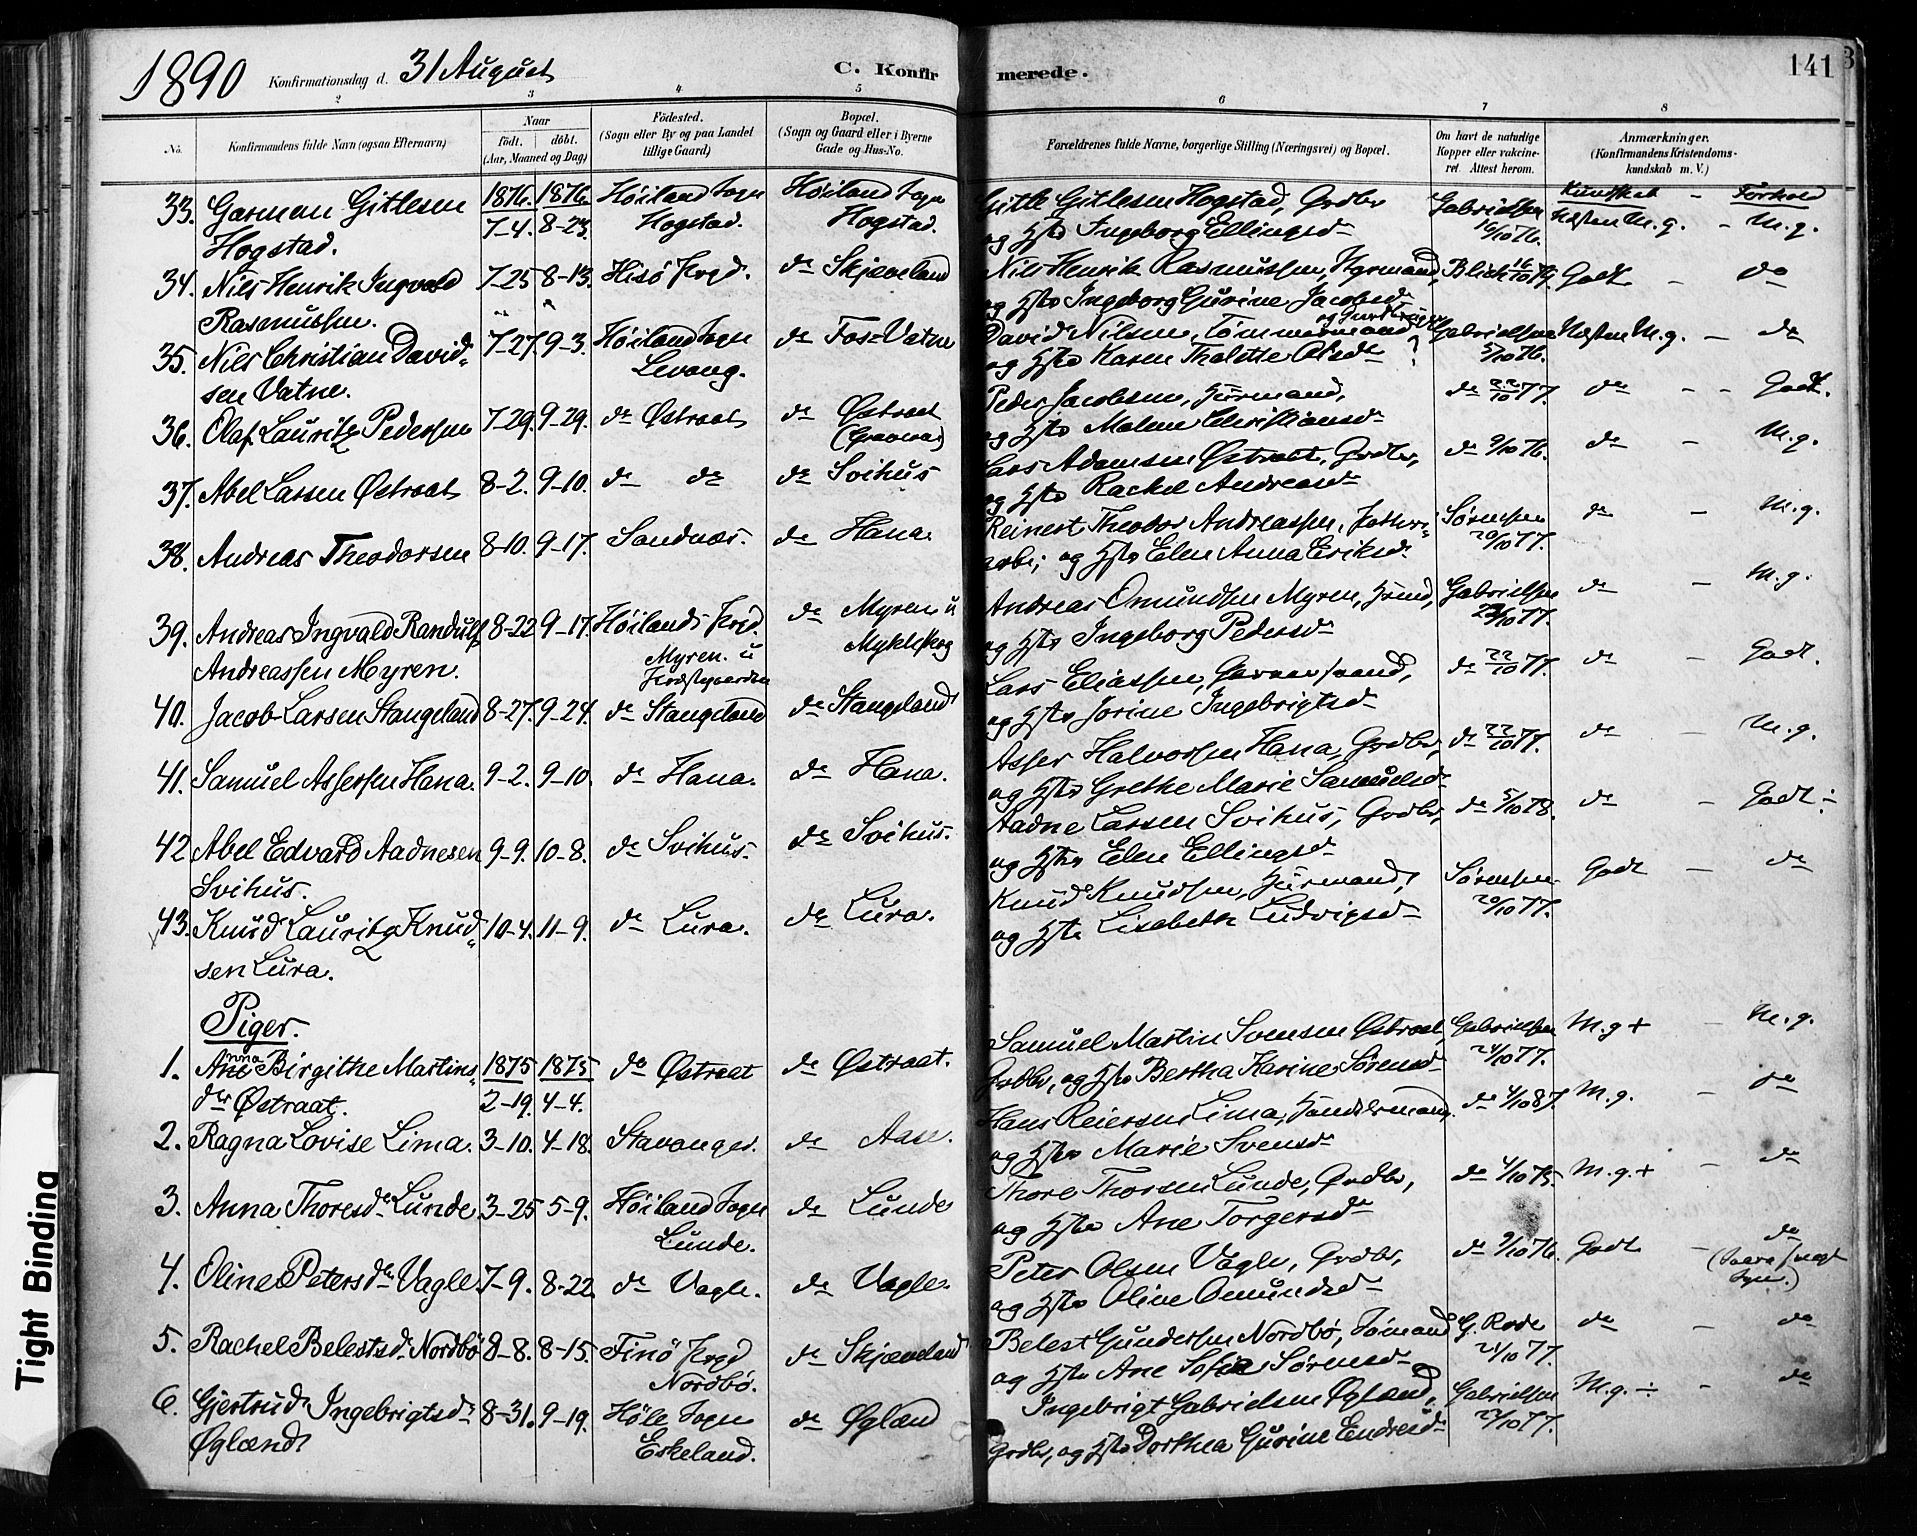 1890 Konfirmationsdag d. 31 August C. Konfirmerede. 141
2 3 4 5 6 7 8
No. Konfirmandens fulde Navn (ogsaa Efternavn) Naar født. døbt. (Aar, Maaned og Dag) Fødested. (Sogn eller By og paa Landet tillige Gaard) Bopæl. (Sogn og Gaard eller i Byerne Gade og Hus-No.
Forældrenes fulde Navne, borgerlige Stilling (Næringsvei) og Bopæl. Om havt de naturlige Kopper eller vakcineret. Attest herom. Anmærkninger. (Konfirmandens Kristendomskundskab m. V.)
33. Garman Gitlesen Hogstad. 1876. 7-4. 1876. 8-23. Høiland Sogn Hogstad. Høiland Sogn Hogstad. Gitle Gitlesen Hogstad, Grdbr og Hstr Ingeborg Ellingsdr Gabrielsen 16/10 76. Kundskab - Forhold Næsten M.g. - M.g.
34. Nils Henrik Ingvald Rasmussen. 7-25 8-13. Hisø Prgd. do Skjæveland Nils Henrik Rasmussen, og Hstr Ingeborg Gurine Jacobsdr Blich Godt - do
35. Nils Christian Davidsen Vatne. 7-27. 9-3. Høiland Sogn Levang. do Fos-Vatne David Nilsen, Tømmermand og Hstr Karen Thalette ? Gabrielsen 5/10 76. Næsten M.g. - do
36. Olaf Lauritz Pedersen 7-29. 9-29. do Østraat do Østraat Peder Jacobsen, Husmand, og Hstr Malene Christiansdr do 22/10 77. do - - Godt.
37. Abel Larsen Østraat 8-2. 9-10. do do do Svihus Lars Adamsen Østraat, Grdbr, og Hstr Rachel Andreasdr do 9/10 76. do - M.g.
38. Andreas Theodorsen 8-10. 9-17. Sandnæs. do Hana. Reinert Theodor Andreassen, og Hstr Elen Anna Eriksdr Sørensen 20/10 77. do - M.g.
39. Andreas Ingvald Randulf Andreassen Myren. 8-22 9-17. Høilands Prgd. Myren. u do Myren u Andreas Omundsen Myren, og Hstr Ingeborg Pedersdr Gabrielsen 77. do - M.g.
40. Jacob Larsen Stangeland 8-27. 9-24. do Stangeland do Stangeland Lars Eliassen, Garversvend, og Hstr Jorine Ingebrigtsdr do 22/10 77. do - Godt.
41. Samuel Assersen Hana. 9-2. 9-10. do Hana. do Hana. Asser Halvorsen Hana, Grdbr, og Hstr Grethe Marie Samuelsdr do 22/10 77. do - M.g.
42 Abel Edvard Aadnesen Svihus. 9-9. 10-8. do Svihus. do Svihus. Aadne Larsen Svihus, Grdbr, og Hstr Elen Ellingsdr do 5/10 78. do - Godt ÷
43. Knud Lauritz Knudsen Lura. 10-4. 11-9. do Lura. do Lura. Knud Knudsen, Husmand, og Hstr Lisabeth Ludvigsdr Sørensen 20/10 77. Godt - do
Piger.
1. Anna Birgithe Martinsdtr Østraat. 1875 2-19. 1875 4-4. do Østraat do Østraat. Samuel Martin Svensen Østraat, Grdbr, og Hstr Bertha Karine Sørensdr Gabrielsen 24/10 77. M.g+ - M.g.
2. Ragna Lovise Lima. 3-10. 4-18. Stavanger. do Aase. Hans Reiersen Lima, Handelsmand, og Hstr Marie Svensdr do 4/10 87. M.g. - do
3. Anna Thoresdr Lunde. 3-25 5-9. Høiland Sogn Lunde. do Lunde Thore Thorsen Lunde, Grdbr, og Hstr Ane Torgersdr do 4/10 75. M.g.+ - do
4. Oline Petersdtr Vagle. 7-9. 8-22. do Vagle. do Vagle. Peter Olsen Vagle, Grdbr, og Hstr Oline Omundsdr do 9/10 76. Godt - do
5. Rachel Belestsdr Nordbø 8-8. 8-15. Finø Prgd Nordbø. do Skjæveland Belest Gundersen Nordbø, og Hstr Ane Sofie Sørensdr G. Rode 21/10 77. do - do
6. Gjertrud Ingebrigtsdr Øglænd 8-31. 9-19. Høle Sogn Eskeland. do Øglænd Ingebrigt Gabrielsen Øglænd, Grdbr, og Hstr Dorthea Gurine Endresdr Gabrielsen 77. M.g. ÷ - do
Tight Binding